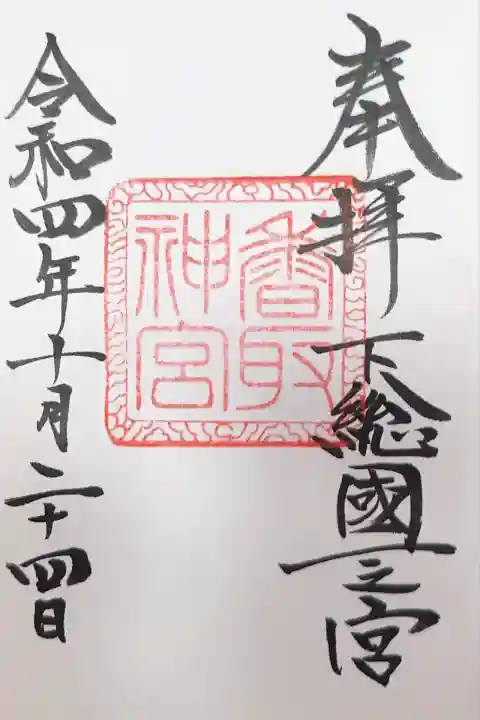 奉拝
下総國一之宮
香取
神宮
令和四年十月二十四日